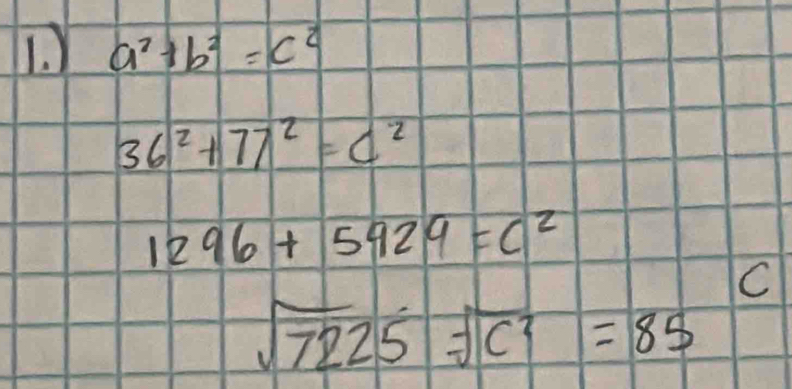 1.) a² + b² = c²
36² + 77² = c²
1296 + 5929 = c²
C
√7225 = √c² = 85